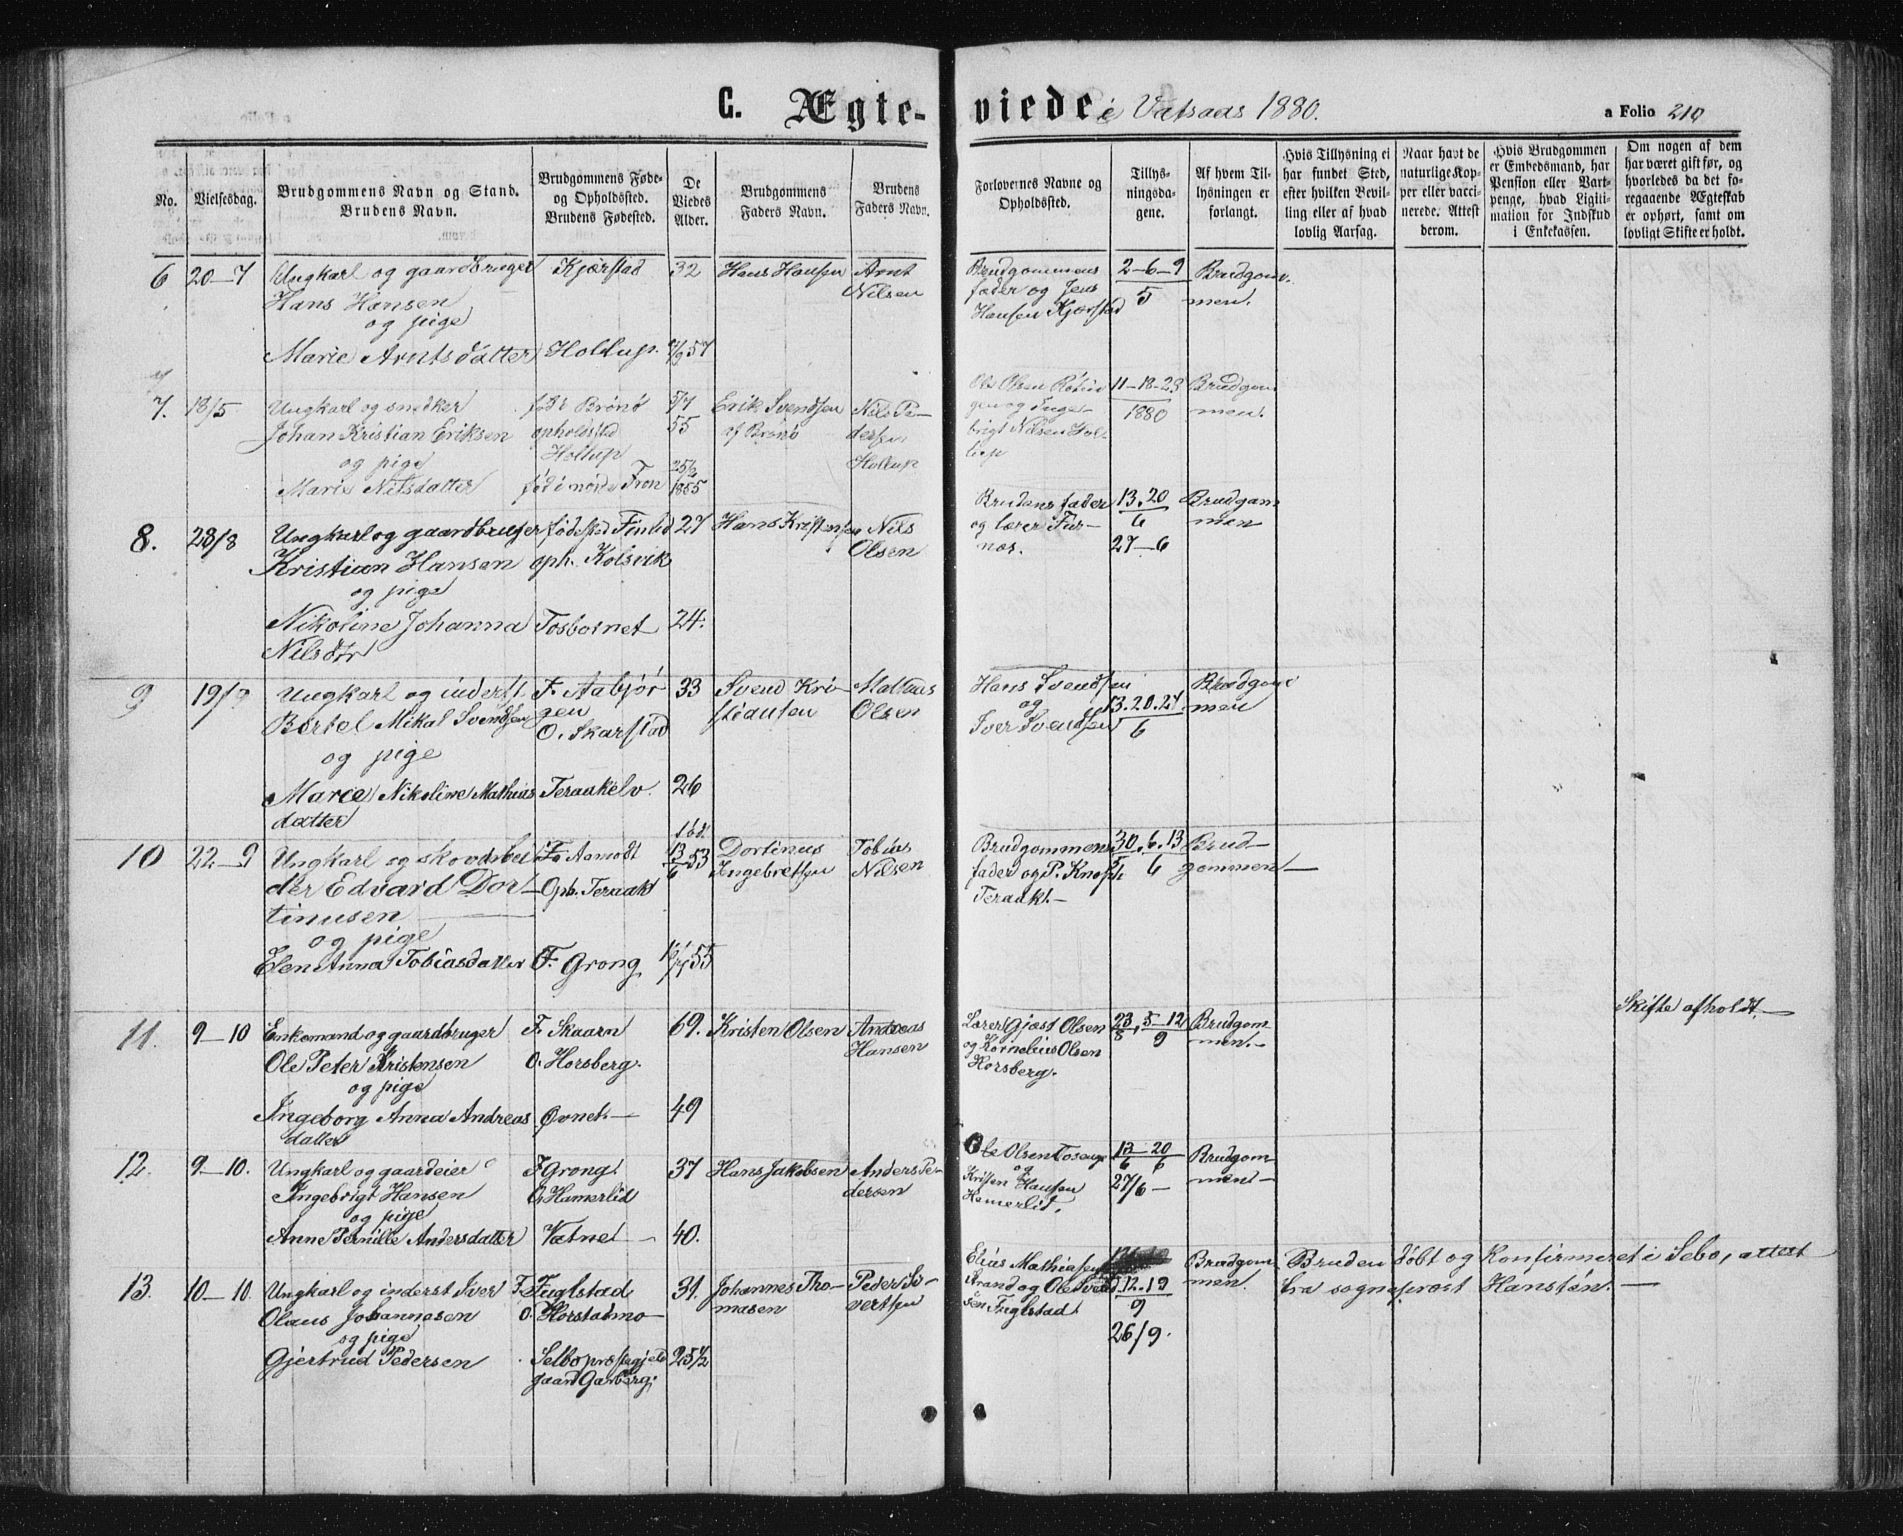 C. Ægte-viede i Vatsaas 1880. a Folio 210
No. Vielsesdag. Brudgommens Navn og Stand. Brudens Navn. Brudgommens Føde- og Opholdssted. Brudens Fødested. De Viedes Alder. Brudgommens Faders Navn. Brudens Faders Navn. Forlovernes Navne og Opholdssted. Tillysningsdagene. Af hvem Tillysningen er forlangt. Hvis Tillysning ei har fundet Sted, efter hvilken Bevilling eller af hvad lovlig Aarsag. Naar havt de naturlige Kopper eller vaccinerede. Attest derom. Hvis Brudgommen er Embedsmand, har Pension eller Vartpenge, hvad Ligitimation for Indskud i Enkekassen. Om nogen af dem har været gift før, og hvorledes da det foregaaende Ægteskab er ophørt, samt om lovligt Skifte er holdt.
6 20-7 Ungkarl og gaardbruger Kjærstad 32 Hans Hansen Arnt Brudgommens 2-6-9 Brudgom-
Hans Hansen Nilsen fader og Jens 5 men.
og pige Hansen Kjærstad
Marie Arntsdatter Holtup. 57
7. 18/5 Ungkarl og snedker født Brønø 5/7 Erik Svendsen Nils Pe- Ole Olsen 11-18-23 Brudgom
Johan Kristian Eriksen opholdssted 55 af Brønø dersen 1880 men.
og pige Holtup Holtup brigt Nilsen Hol-
Marie Nilsdatter fød i nordre Fron 1855
8. 28/8 Ungkarl og gaardbruger fødested Finlid 27 Hans Kristensen Nils Brudens fader 13.20 Brudgom
Kristian Hansen oph. Kolsvik Olsen og lærer Fur- 6 men
og pige næs. 27-6
Nikoline Johanna Tosbotnet 24.
Nilsdtr
9 19/9 Ungkarl og inderst F. Aabjør 33 Svend Kri- Mathias Hans Svendsen Brudgom
Bertel Mikal Svendsen gen stiansen Olsen og 13.20.27 men
og pige O. Skarstad Iver Svendsen 6
Marie Nikoline Mathias Teraakelv. 26
datter
10 22-9 Ungkarl og skovarbei F. Aamodt 13/6 53 Dortinus Tobias Brudgommens 30.6.13 Brud-
der Edvard Dor- Oph. Teraakt Ingebretsen Nilsen fader og P. Knoph 5 6 gommen-
tinusen Teraakt.-
og pige
Elen Anna Tobiasdatter F. Grong 55
11. 9-10 Enkemand og gaardbruger F. Skaarn 69. Kristen Olsen Andreas Lærer Gjæst Olsen 23 5-12 Brudgom- Skifte afholdt.-
Ole Peter Kristensen O. Horsberg. Hansen og Kornelius Olsen 8 9 men.-
og pige Horsberg.
Ingeborg Anna Andreas Øvnet.- 49
datter
12. 9-10. Ungkarl og gaardeier F. Grong 37 Hans Jakobsen Anders Pe- Ole Olsen 13-20 Brudgom-
Ingebrigt Hansen O. Hamerlid dersen og 6 6 men-
og pige Hansen 27/6-
Anne Pernille Andersdatter Vatnet - 40. Hemerlid.
13. 10-10. Ungkarl og inderst Iver F. Fuglstad 31. Johannes Tho- Peder Si- Elias Mathiasen Brudgom Bruden døbt og Konfirmeret i Sebo, attest
Olaus Johannesen O. Horstadmo- masen vertsen Strand og Ole 12.19 men. fra sogneprost Hansten.-
og pige Fuglstad 9
Gjertrud Pedersen Selbo præstegjeld 25 1/2 26/9.
gaard Garberg.